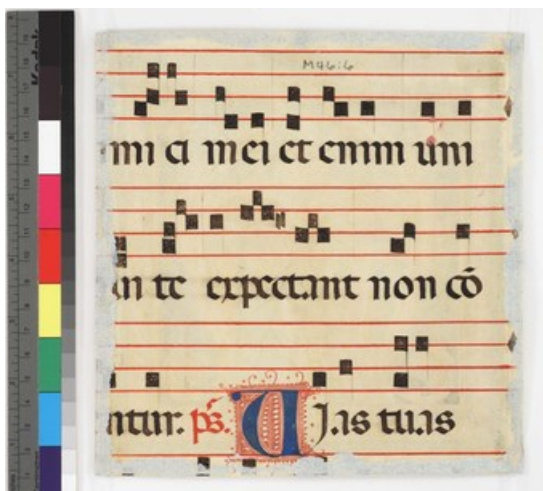 Kodak
M46:6
mi ci mei et enim uni
te expectant non cō
ntur. ps. Vias tuas